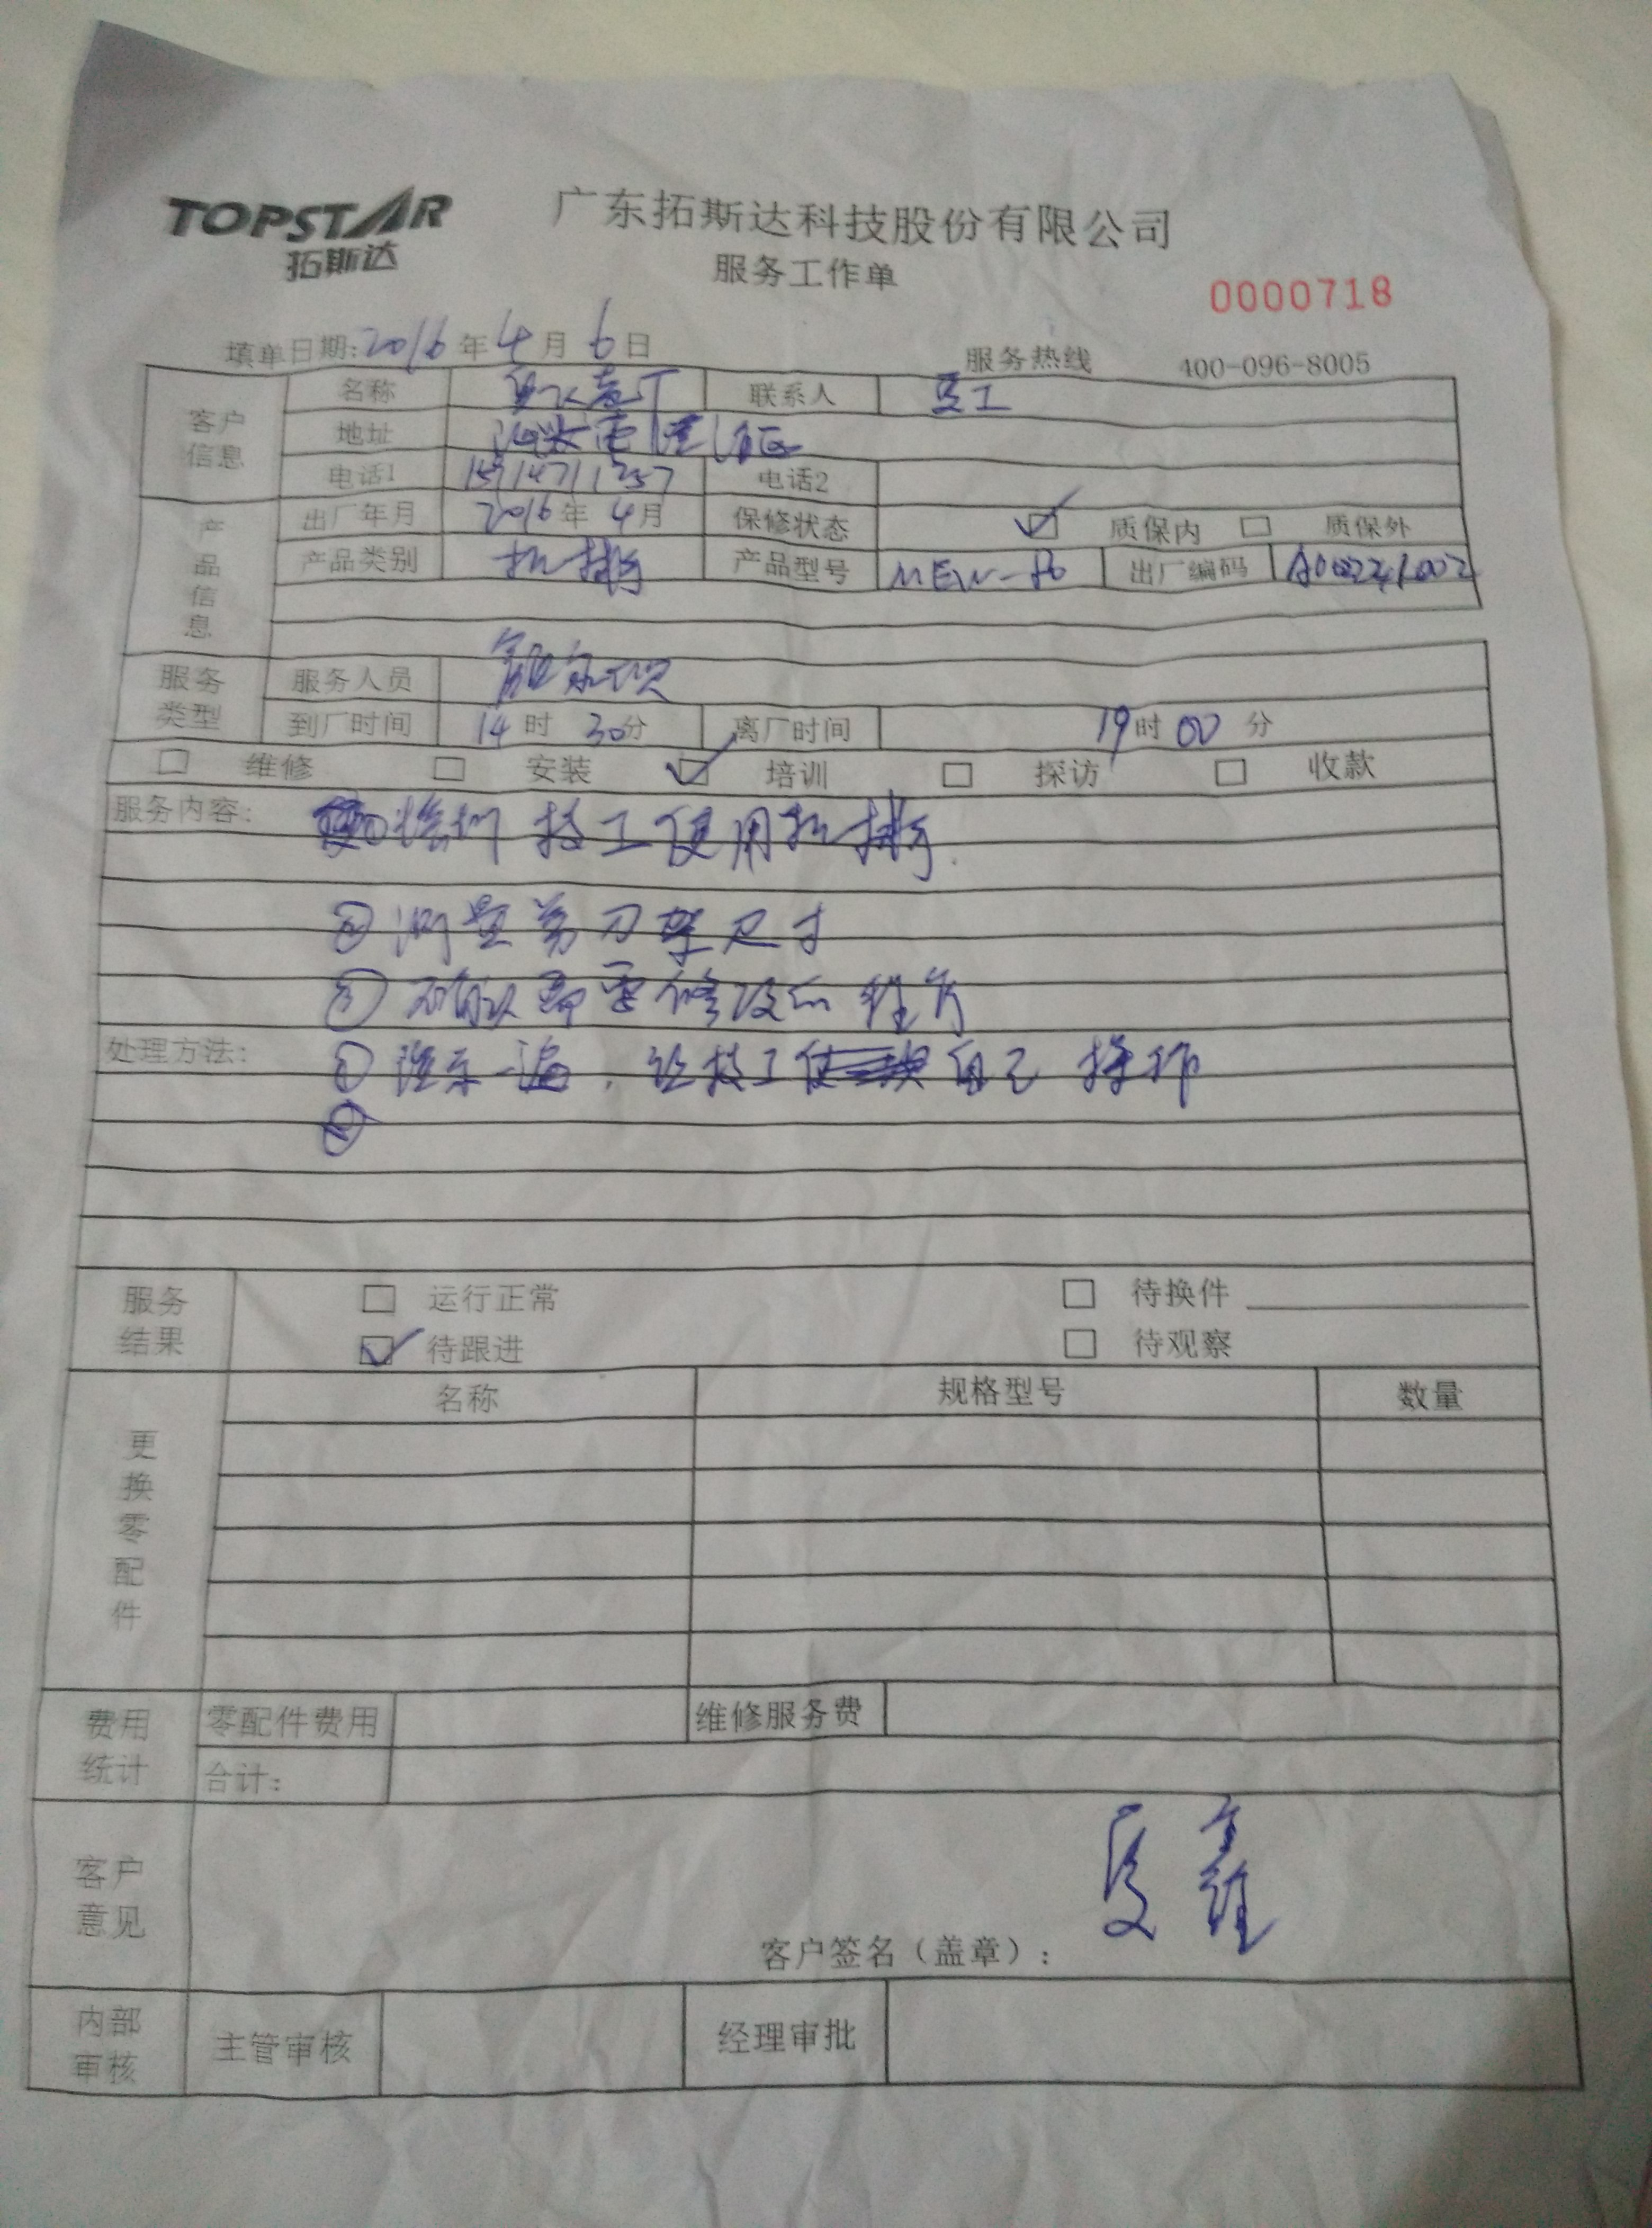 TOPSTAR
拓斯达
广东拓斯达科技股份有限公司
服务工作单
0000718
填单日期:2016年4月6日
服务热线 400-096-8005
客户信息
名称 联系人
地址
电话1 电话2
产品信息
出厂年月 2016年4月 保修状态 质保内 质保外
产品类别 机械手 产品型号 出厂编码
服务类型
服务人员
到厂时间 14时30分 离厂时间 19时00分
维修 安装 培训 探访 收款
服务内容: ①培训技工使用机械手.
②测量剪刀架尺寸
③确认需要修改的程序
处理方法: ①演示一遍,让技工自己操作
②
服务结果
运行正常 待换件
待跟进 待观察
更换零配件
名称 规格型号 数量
费用统计
零配件费用 维修服务费
合计:
客户意见
客户签名(盖章):
内部审核
主管审核 经理审批